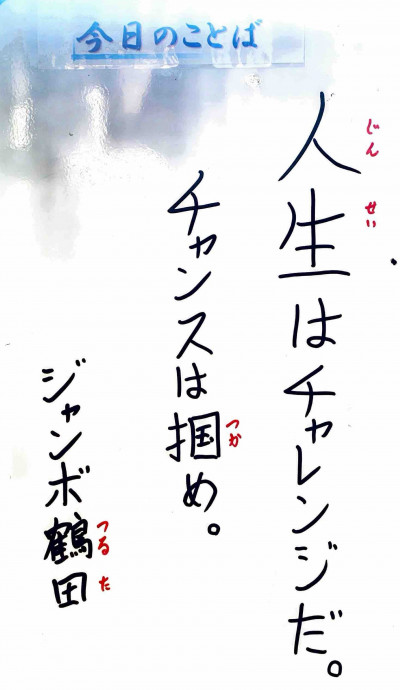 今日のことば
人生はチャレンジだ。
じんせい
チャンスは掴め。
つか
ジャンボ鶴田
つるた